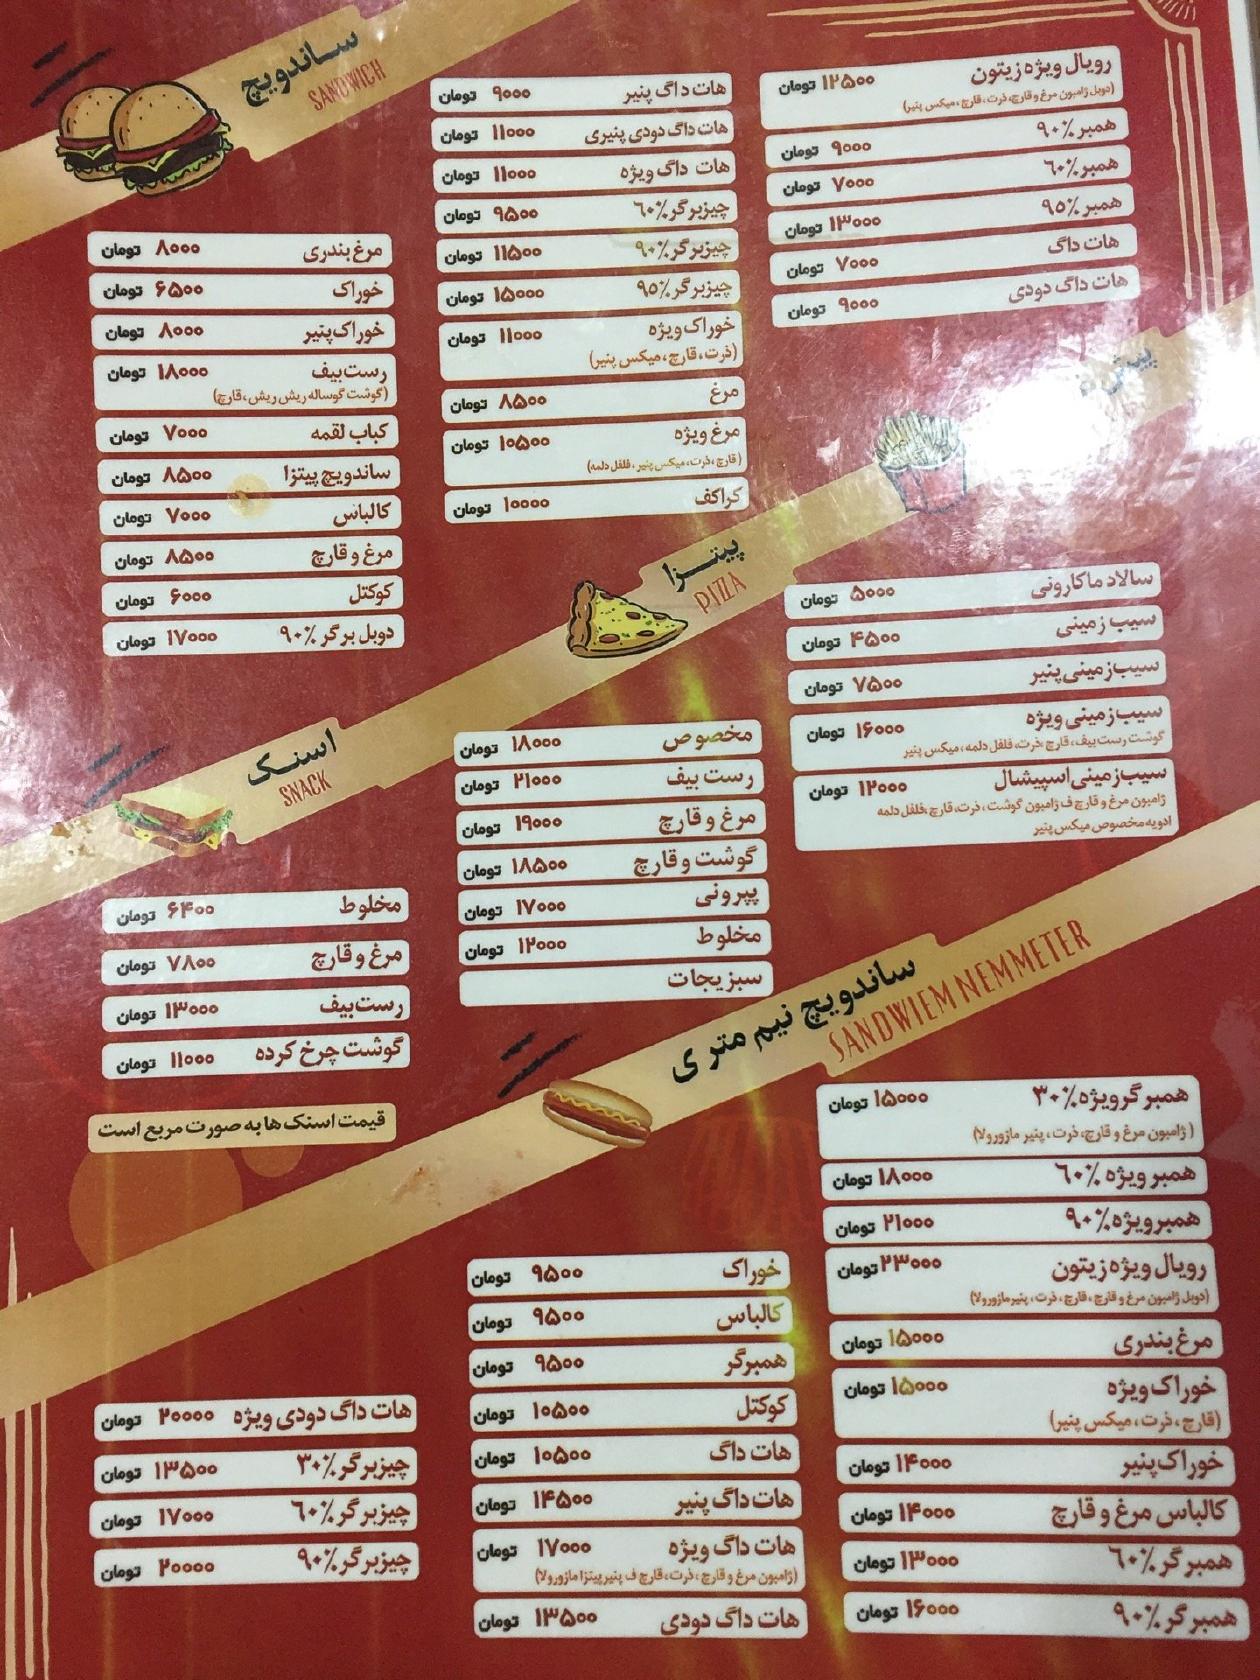 ساندویچ
SANDWICH
رویال ویژه زیتون ۱۲۵۰۰ تومان
(دوبل ژامبون مرغ و قارچ، ذرت، قارچ، میکس پنیر)
همبر ۹۰٪ ۹۰۰۰ تومان
همبر ۶۰٪ ۷۰۰۰ تومان
همبر ۹۵٪ ۱۳۰۰۰ تومان
هات داگ ۷۰۰۰ تومان
هات داگ دودی ۹۰۰۰ تومان
هات داگ پنیر ۹۰۰۰ تومان
هات داگ دودی پنیری ۱۱۰۰۰ تومان
هات داگ ویژه ۱۱۰۰۰ تومان
چیزبرگر ۶۰٪ ۹۵۰۰ تومان
چیزبرگر ۹۰٪ ۱۱۵۰۰ تومان
چیزبرگر ۹۵٪ ۱۵۰۰۰ تومان
خوراک ویژه ۱۱۰۰۰ تومان
(ذرت، قارچ، میکس پنیر)
مرغ ۸۵۰۰ تومان
مرغ ویژه ۱۰۵۰۰ تومان
(قارچ، ذرت، میکس پنیر، فلفل دلمه)
کراکف ۱۰۰۰۰ تومان
مرغ بندری ۸۰۰۰ تومان
خوراک ۶۵۰۰ تومان
خوراک پنیر ۸۰۰۰ تومان
رست بیف ۱۸۰۰۰ تومان
(گوشت گوساله ریش ریش، قارچ)
کباب لقمه ۷۰۰۰ تومان
ساندویچ پیتزا ۸۵۰۰ تومان
کالباس ۷۰۰۰ تومان
مرغ و قارچ ۸۵۰۰ تومان
کوکتل ۶۰۰۰ تومان
دوبل برگر ۹۰٪ ۱۷۰۰۰ تومان
سالاد ماکارونی ۵۰۰۰ تومان
سیب زمینی ۴۵۰۰ تومان
سیب زمینی پنیر ۷۵۰۰ تومان
سیب زمینی ویژه ۱۶۰۰۰ تومان
گوشت رست بیف، قارچ، ذرت، فلفل دلمه، میکس پنیر
سیب زمینی اسپیشال ۱۲۰۰۰ تومان
ژامبون مرغ و قارچ ف ژامبون گوشت، ذرت، قارچ، فلفل دلمه
ادویه مخصوص میکس پنیر
پیتزا
PIZZA
مخصوص ۱۸۰۰۰ تومان
رست بیف ۲۱۰۰۰ تومان
مرغ و قارچ ۱۹۰۰۰ تومان
گوشت و قارچ ۱۸۵۰۰ تومان
پپرونی ۱۷۰۰۰ تومان
مخلوط ۱۲۰۰۰ تومان
سبزیجات
اسنک
SNACK
مخلوط ۶۴۰۰ تومان
مرغ و قارچ ۷۸۰۰ تومان
رست بیف ۱۳۰۰۰ تومان
گوشت چرخ کرده ۱۱۰۰۰ تومان
قیمت اسنک ها به صورت مربع است
ساندویچ نیم متر ی
SANDWIEM NEMMETER
همبرگر ویژه ۳۰٪ ۱۵۰۰۰ تومان
(ژامبون مرغ و قارچ، ذرت، پنیر مازورولا)
همبر ویژه ۶۰٪ ۱۸۰۰۰ تومان
همبر ویژه ۹۰٪ ۲۱۰۰۰ تومان
رویال ویژه زیتون ۲۳۰۰۰ تومان
(دوبل ژامبون مرغ و قارچ، قارچ، ذرت، پنیر مازورولا)
مرغ بندری ۱۵۰۰۰ تومان
خوراک ویژه ۱۵۰۰۰ تومان
(قارچ، ذرت، میکس پنیر)
خوراک پنیر ۱۴۰۰۰ تومان
کالباس مرغ و قارچ ۱۴۰۰۰ تومان
همبرگر ۶۰٪ ۱۳۰۰۰ تومان
همبرگر ۹۰٪ ۱۶۰۰۰ تومان
خوراک ۹۵۰۰ تومان
کالباس ۹۵۰۰ تومان
همبرگر ۹۵۰۰ تومان
کوکتل ۱۰۵۰۰ تومان
هات داگ ۱۰۵۰۰ تومان
هات داگ پنیر ۱۴۵۰۰ تومان
هات داگ ویژه ۱۷۰۰۰ تومان
(ژامبون مرغ و قارچ، ذرت، قارچ ف پنیر پیتزا مازورولا)
هات داگ دودی ۱۳۵۰۰ تومان
هات داگ دودی ویژه ۲۰۰۰۰ تومان
چیزبرگر ۳۰٪ ۱۳۵۰۰ تومان
چیزبرگر ۶۰٪ ۱۷۰۰۰ تومان
چیزبرگر ۹۰٪ ۲۰۰۰۰ تومان